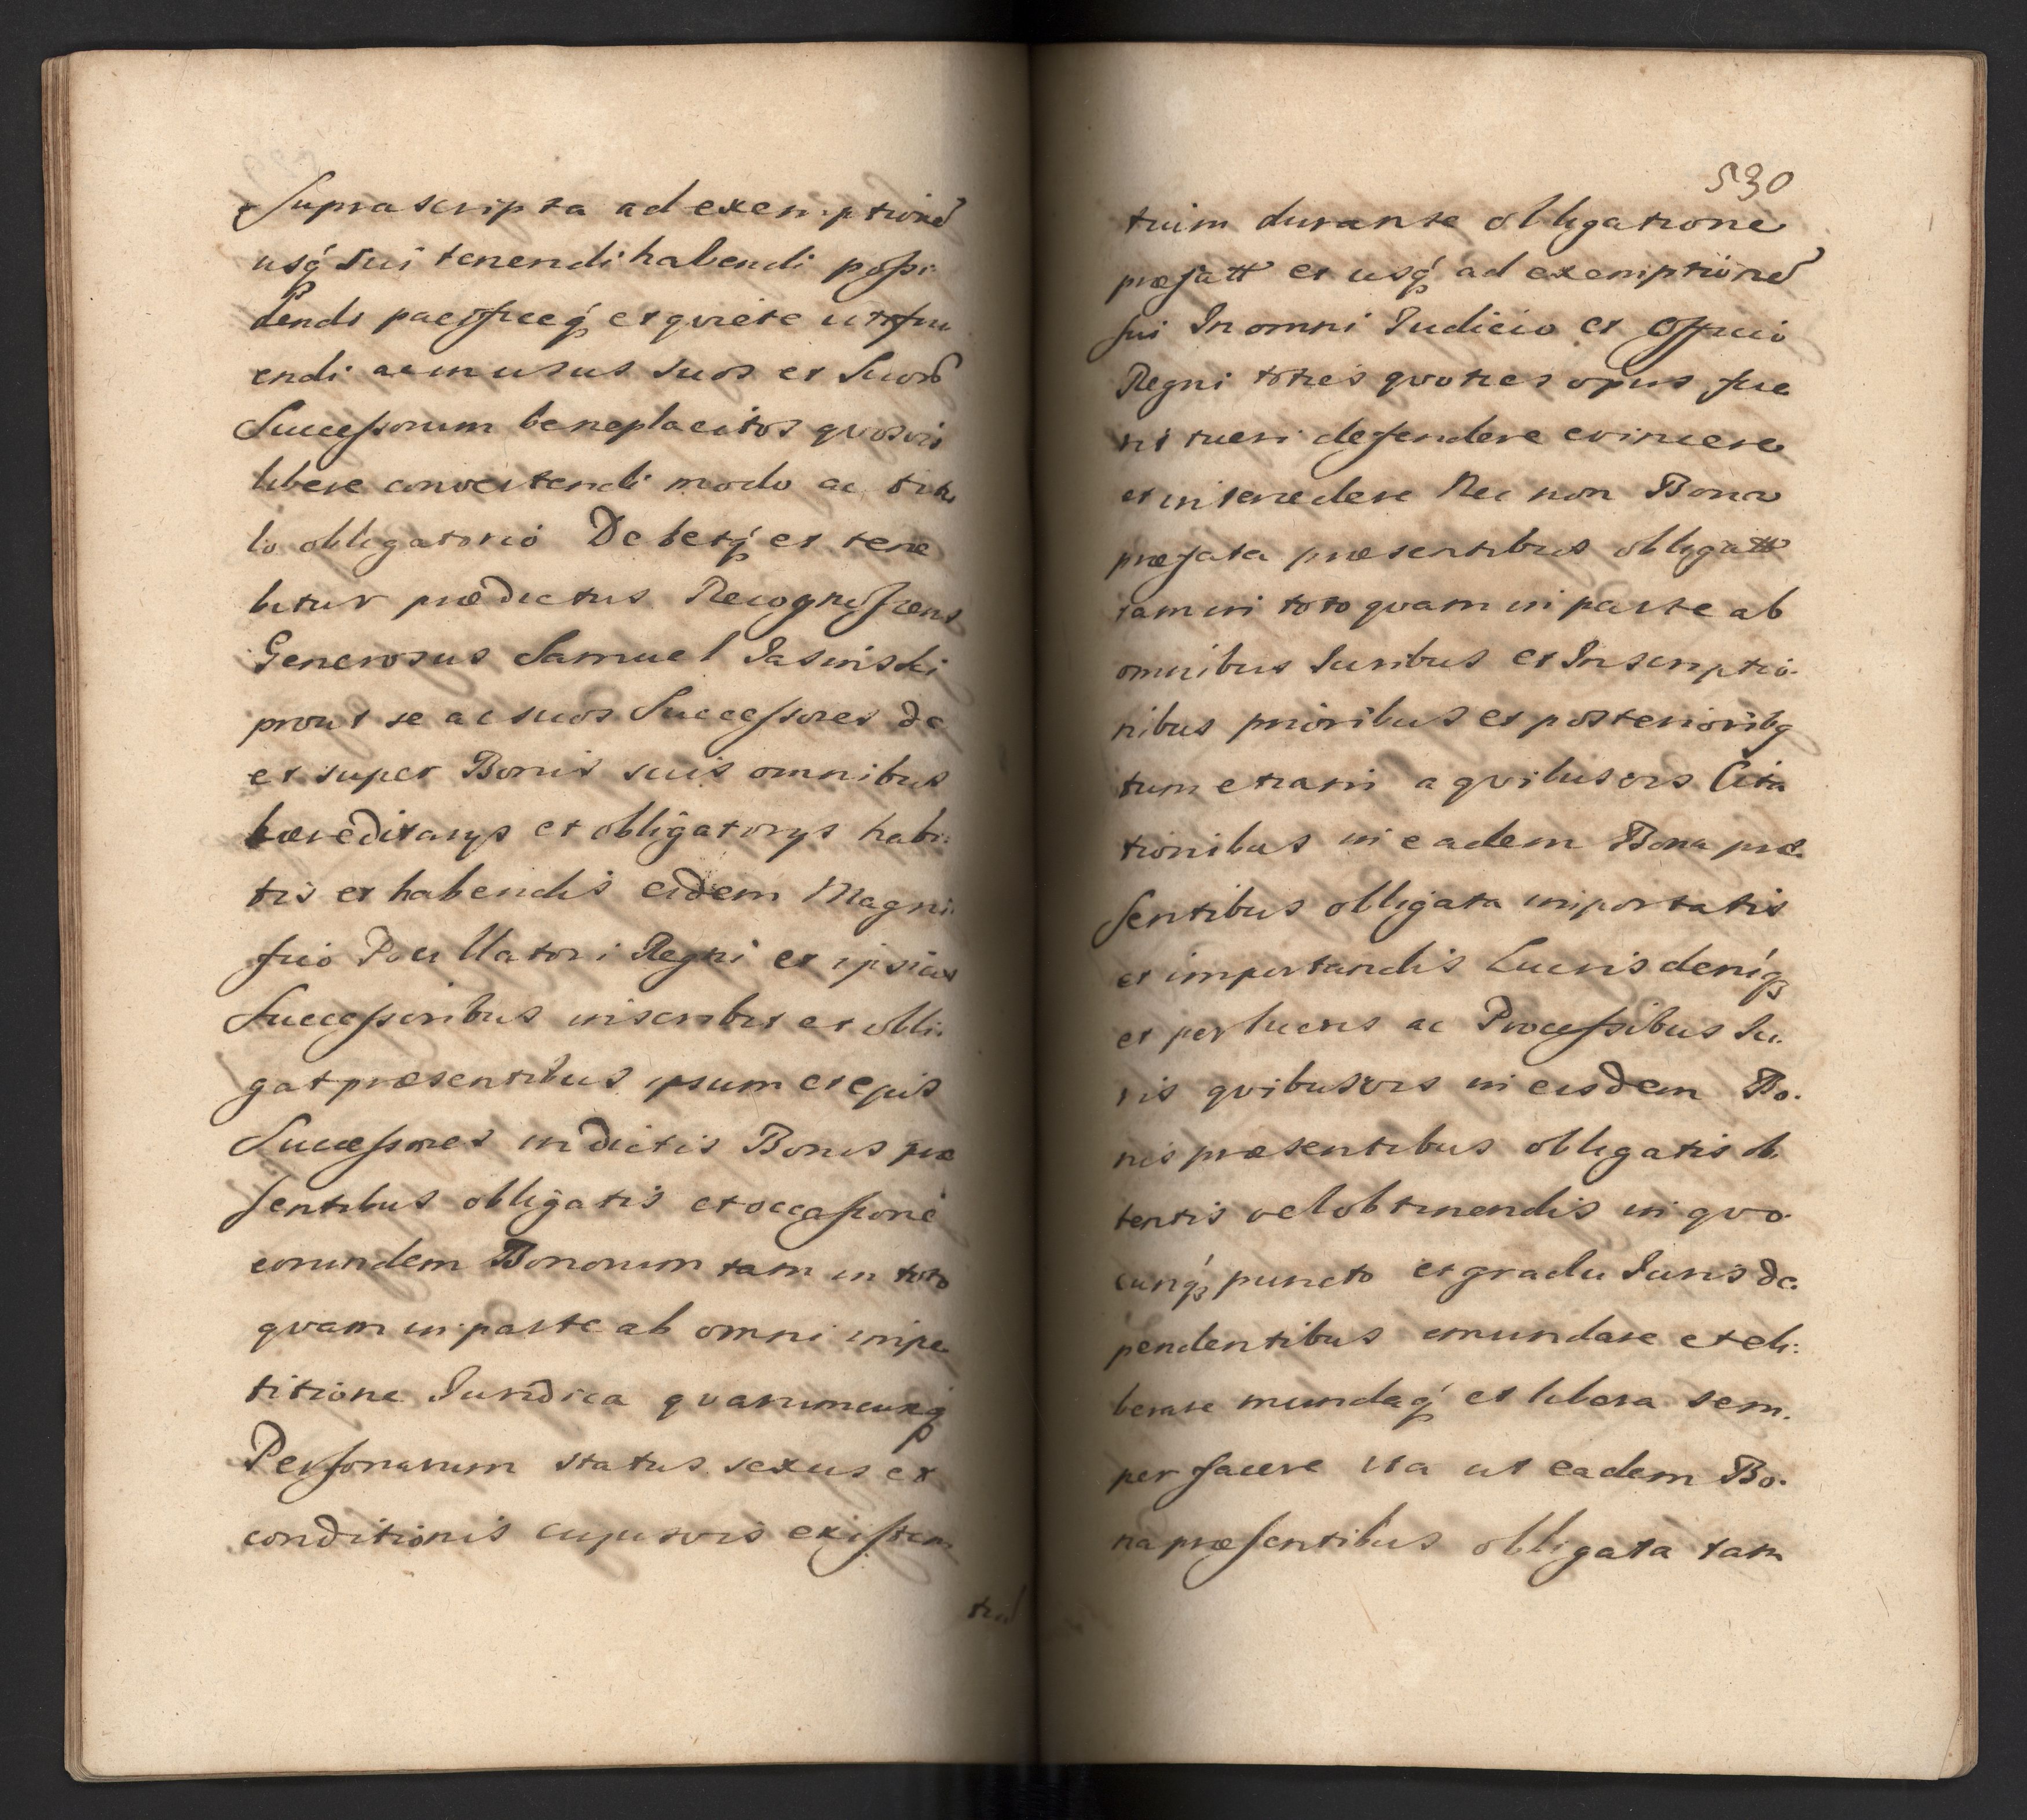 suprascripta ad exemptione
usq sui tenendi habendi possi
dendi pacificeq et qviete utifru
endi ac in usus suos et suor
Successorum beneplacitos qvosvis
libere convertendi modo ac titu
lo obligatorio Debetq et tene
bitur prædictus Recognoscens
Generosus Samuel Jasinski
prout se ac suos Successores de
et super Bonis suis omnibus
hæreditarys et obligatorys habi:
tis et habendis eidem Magni:
fico Pocillatori Regni et ipsius
Successoribus inscribit et obli:
gat præsentibus ipsum et ejus
Successores in dictis Bonis præ
sentibus obligatis et occasione
eorundem Bonorum tam in toto
qvam in parte ab omni impe
titione Juridica qvarumcunq
Personarum status sexus et
conditionis cujusvis existen
530
tium durante obligatione
præfatt et usq ad exemptione
sui In omni Judicio et Officio
Regni toties qvoties opus fue
rit tueri defendere evincere
et intercedere Nec non Bona
præfata præsentibus obligatt
tam in toto qvam in parte ab
omnibus Juribus et Inscriptio
nibus prioribus et posterioribq
tum etiam a qvibusvis Cita
tionibus in eadem Bona præ
sentibus obligata importatis
et importandis Lucris deniq
et perlucris ac Processibus Ju
ris qvibusvis in eisdem Bo.
nis præsentibus obligatis ob
tentis vel obtinendis in qvo
cunq puncto et gradu Juris de
pendentibus emundare et eli:
berare mundaq et libera sem.
per facere ita ut eadem Bo.
na præsentibus obligata tam